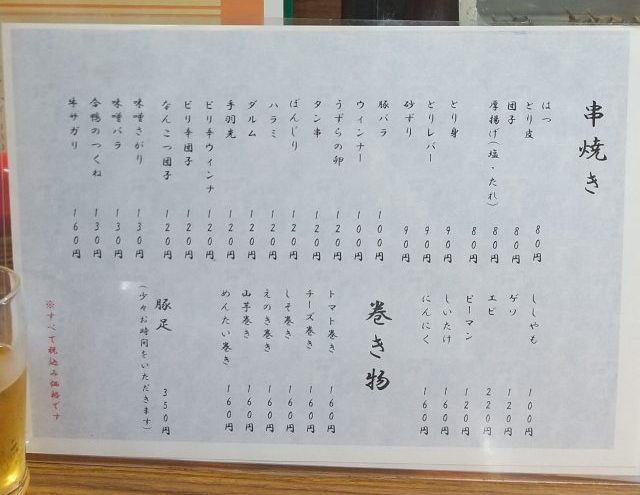 串焼き
はつ 80円
とり皮 80円
団子 80円
厚揚げ(塩・たれ) 80円
とり身 90円
とりレバー 90円
砂ずり 90円
豚バラ 100円
ウィンナー 100円
うずらの卵 120円
タン串 120円
ぼんじり 120円
ハラミ 120円
ダルム 120円
手羽先 120円
ピリ辛ウィンナ 120円
ピリ辛団子 120円
なんこつ団子 120円
味噌さがり 130円
味噌バラ 130円
合鴨のつくね 130円
牛サガリ 160円
ししゃも 100円
ゲソ 120円
エビ 220円
ピーマン 120円
しいたけ 160円
にんにく 160円
巻き物
トマト巻き 160円
チーズ巻き 160円
しそ巻き 160円
えのき巻き 160円
山芋巻き 160円
めんたい巻き 160円
豚足 350円
(少々お時間をいただきます)
※すべて税込み価格です